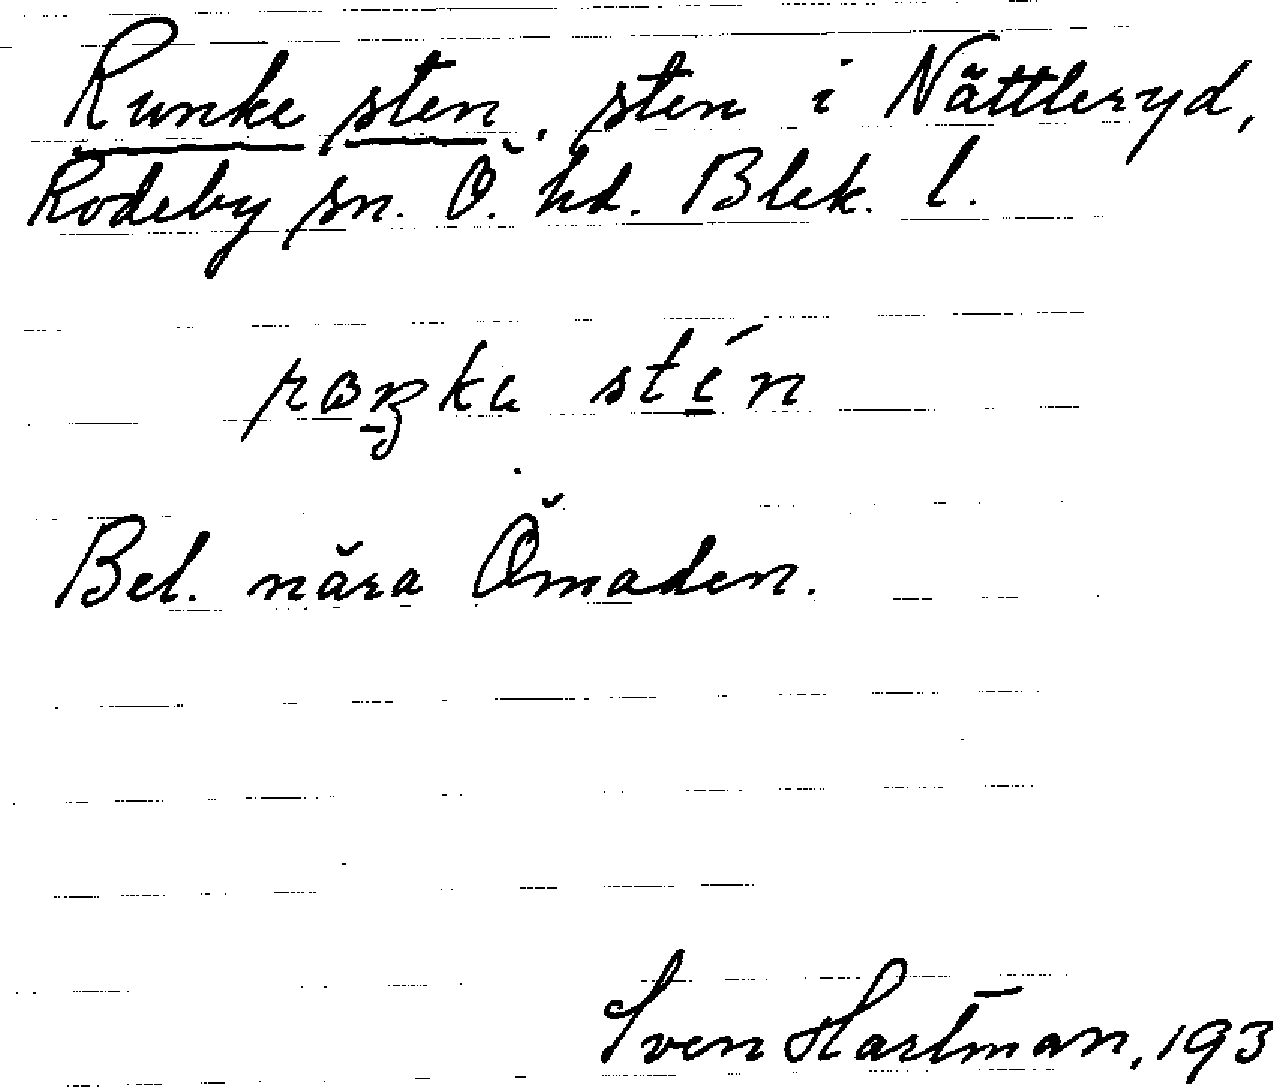 Runke sten. sten i Nättleryd,
Rödeby sn. Ö. hd. Blek. l.
Bel. nära Ömaden.
Sven Hartman, 193